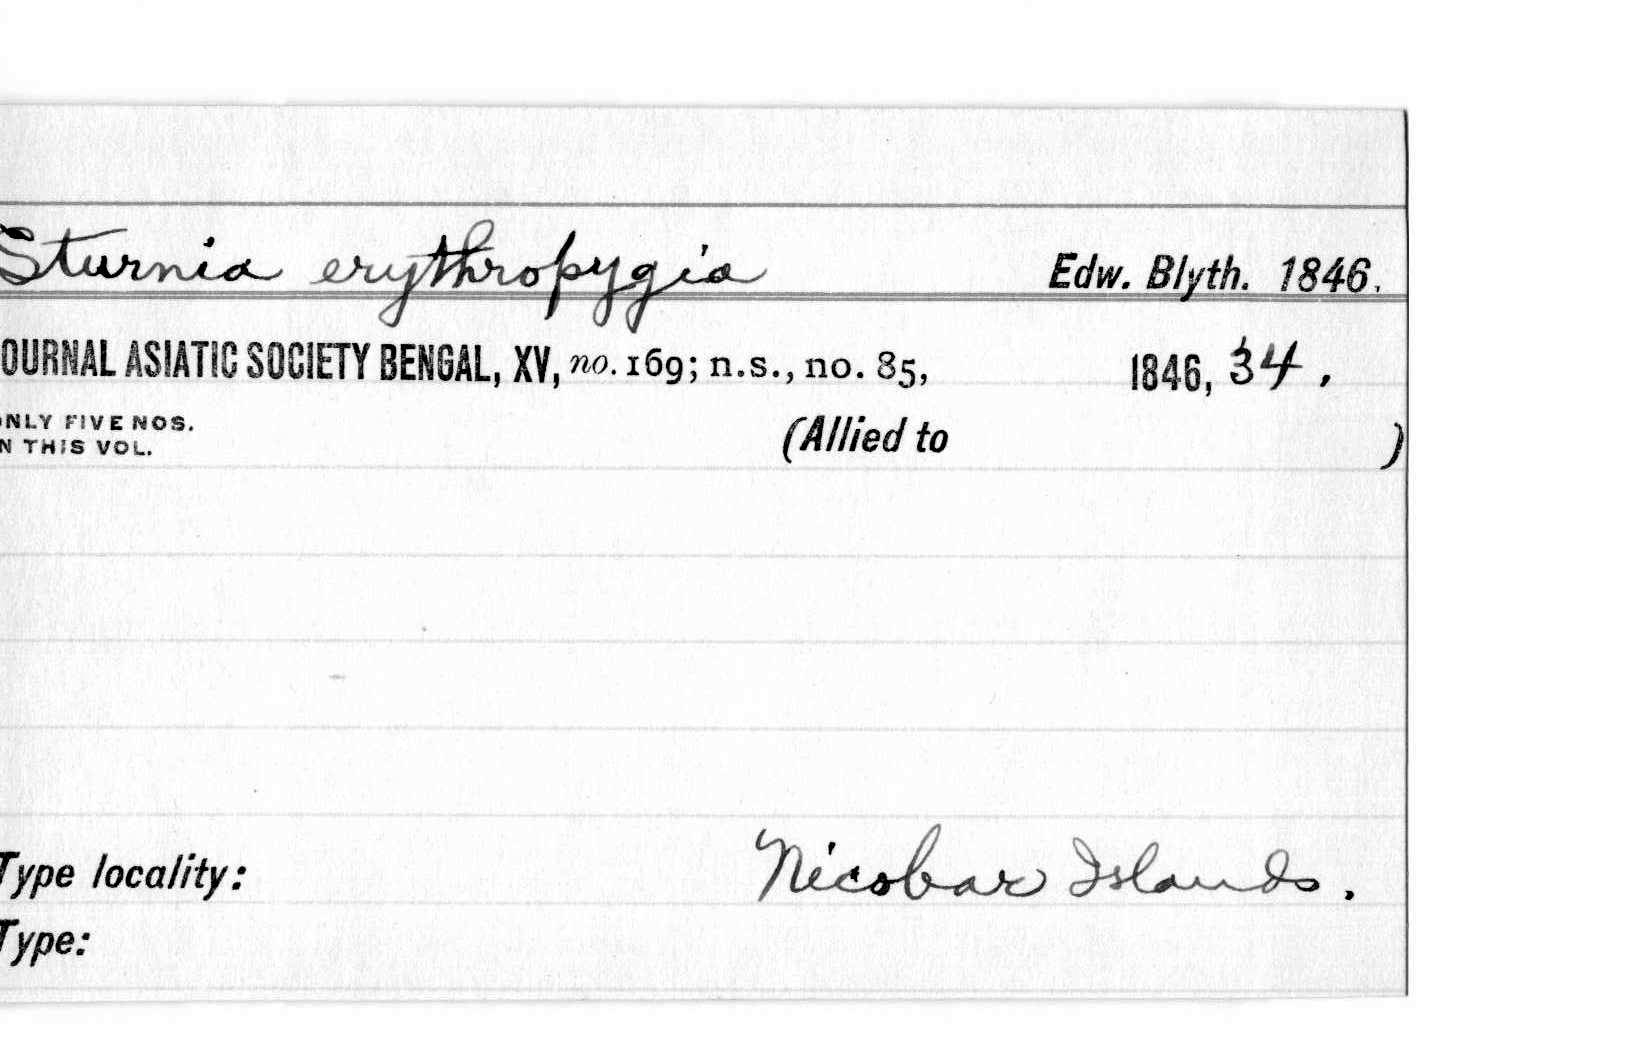 Sturnia erythropygia Edw. Blyth. 1846.
OURNAL ASIATIC SOCIETY BENGAL, XV, no. 169; n.s., no. 85, 1846, 34.
ONLY FIVE NOS.
N THIS VOL.
(Allied to )
Type locality: Nicobar Islands.
Type: